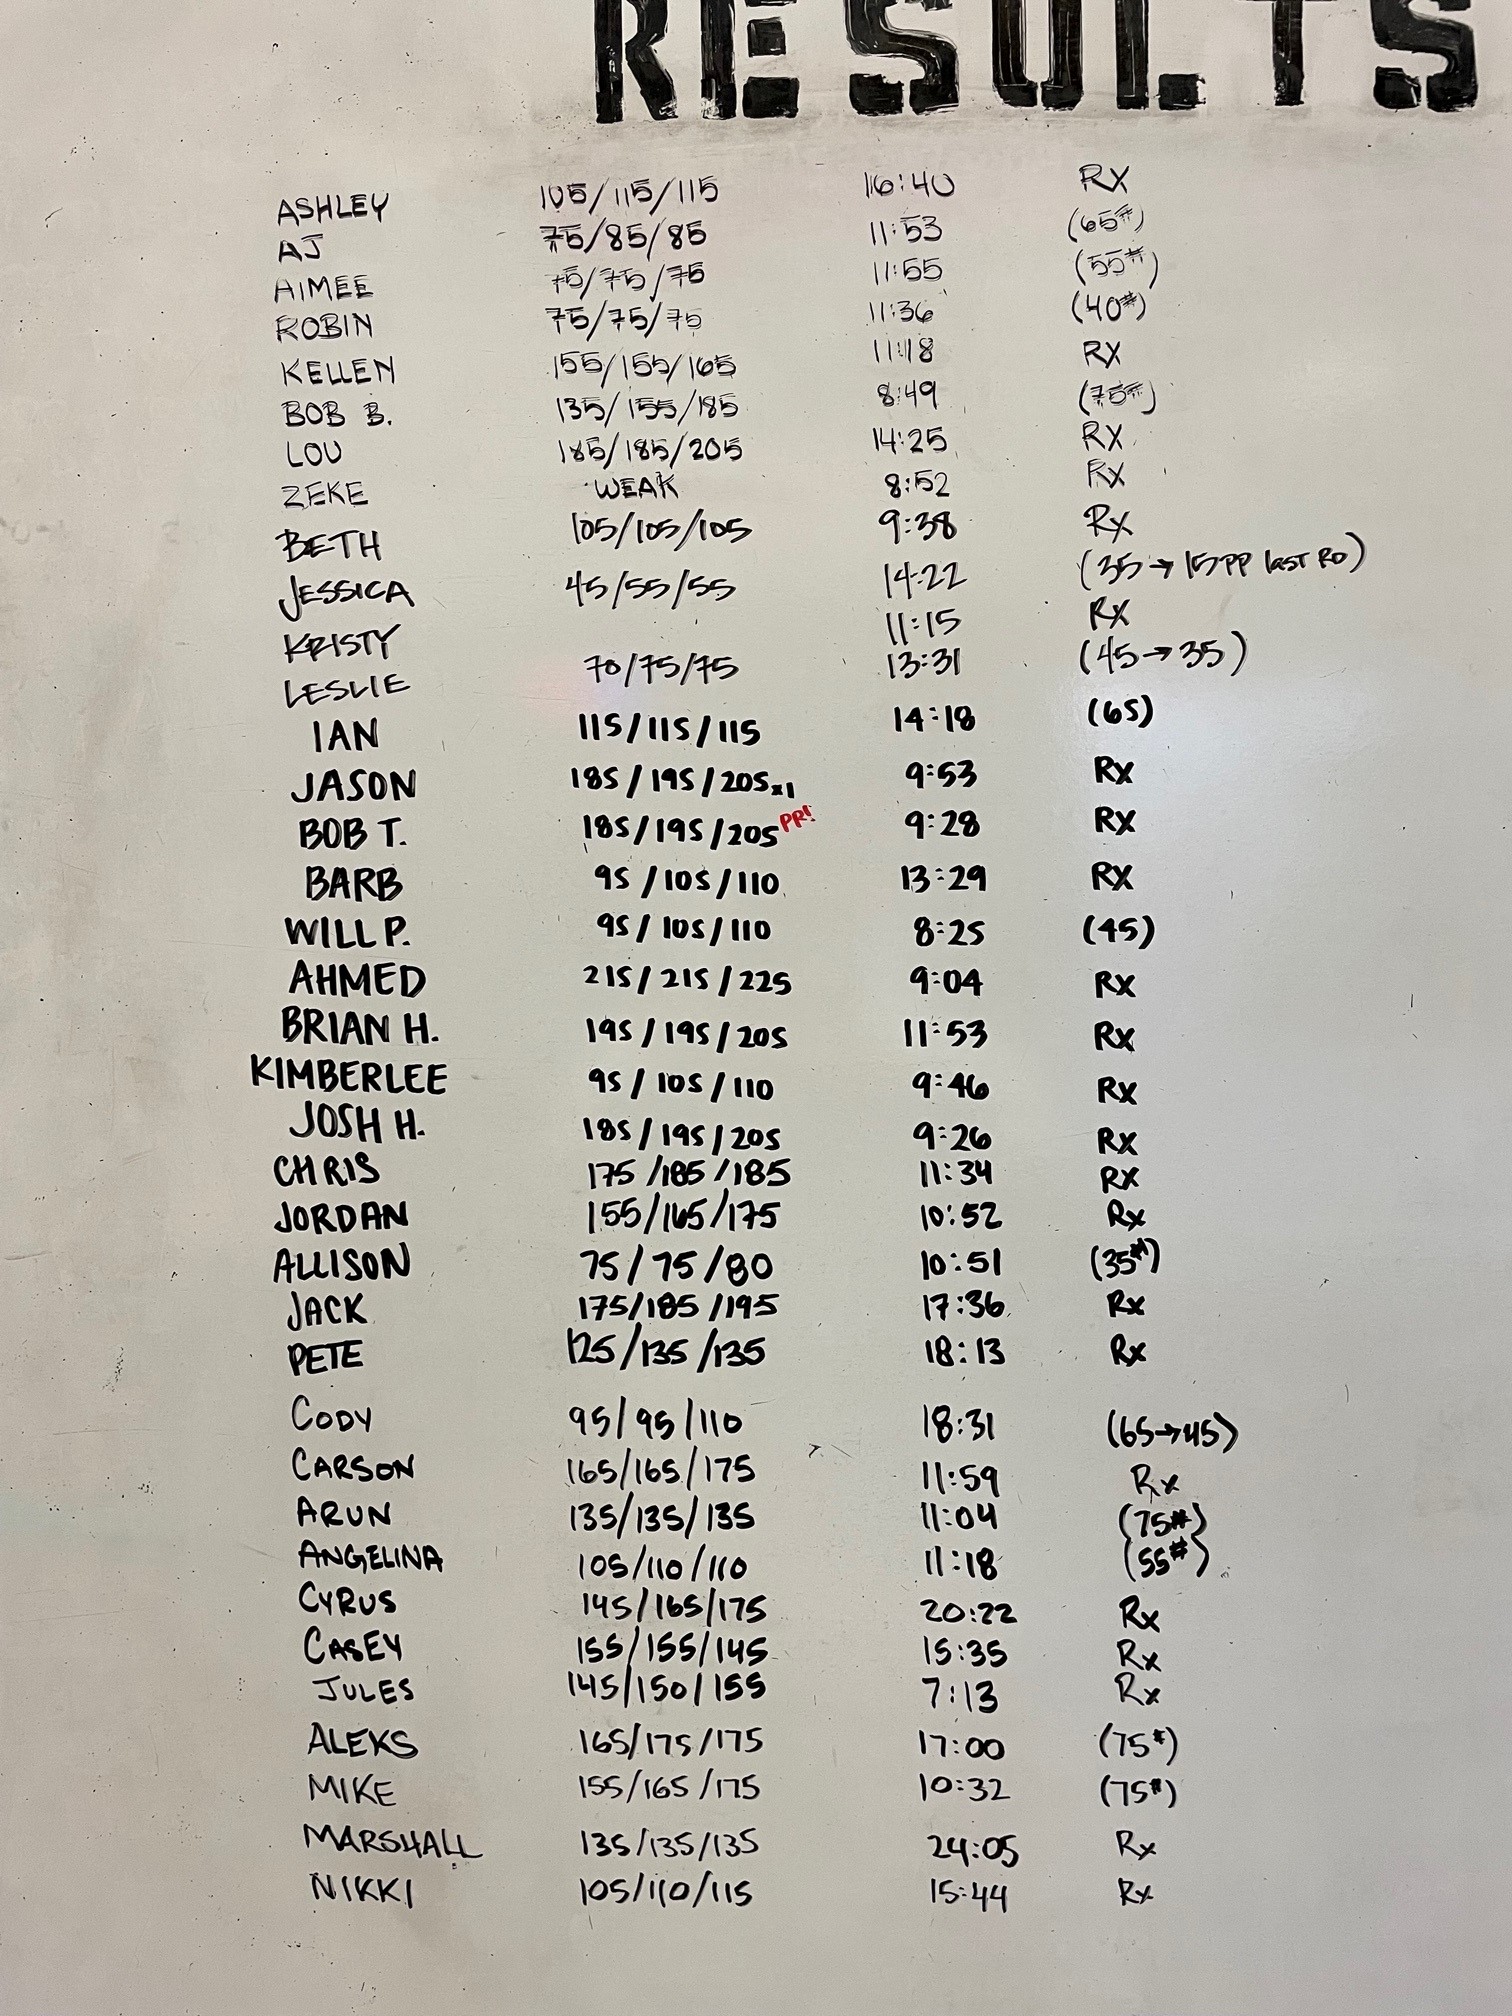 RESULTS
ASHLEY 105/115/115 16:40 RX
AJ 75/85/85 11:53 (65#)
AIMEE 75/75/75 11:55 (55#)
ROBIN 75/75/75 11:36 (40#)
KELLEN 155/155/165 11:18 RX
BOB B. 135/155/185 8:49 (75#)
LOU 185/185/205 14:25 RX
ZEKE WEAK 8:52 RX
BETH 105/105/105 9:38 Rx
JESSICA 45/55/55 14:22 (35→15PP last RD)
KRISTY 11:15 Rx
LESLIE 70/75/75 13:31 (45→35)
IAN 115/115/115 14:18 (65)
JASON 185/195/205x1 9:53 Rx
BOB T. 185/195/205 PR! 9:28 Rx
BARB 95/105/110 13:29 Rx
WILL P. 95/105/110 8:25 (45)
AHMED 215/215/225 9:04 Rx
BRIAN H. 195/195/205 11:53 Rx
KIMBERLEE 95/105/110 9:46 Rx
JOSH H. 185/195/205 9:26 Rx
CHRIS 175/185/185 11:34 Rx
JORDAN 155/165/175 10:52 Rx
ALLISON 75/75/80 10:51 (35#)
JACK 175/185/195 17:36 Rx
PETE 125/135/135 18:13 Rx
CODY 95/95/110 18:31 (65→45)
CARSON 165/165/175 11:59 Rx
ARUN 135/135/135 11:04 (75#)
ANGELINA 105/110/110 11:18 (55#)
CYRUS 145/165/175 20:22 Rx
CASEY 155/155/145 15:35 Rx
JULES 145/150/155 7:13 Rx
ALEKS 165/175/175 17:00 (75#)
MIKE 155/165/175 10:32 (75#)
MARSHALL 135/135/135 24:05 Rx
NIKKI 105/110/115 15:44 Rx